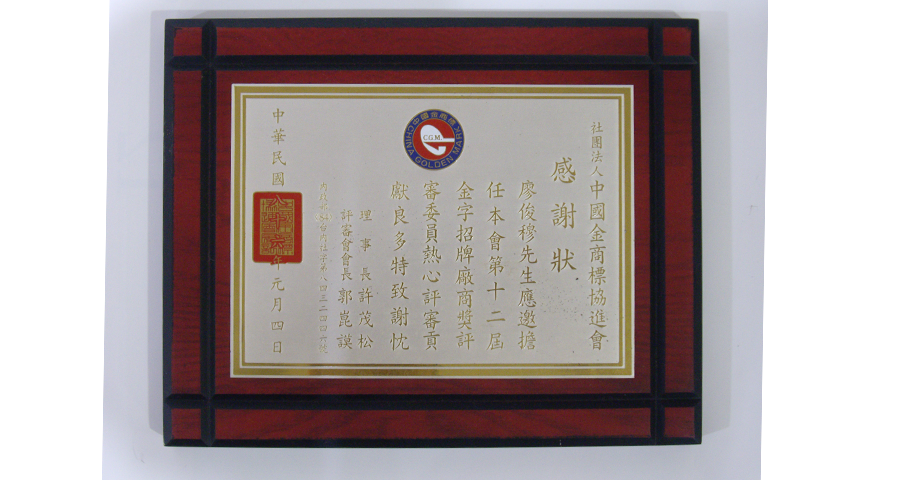 社團法人中國金商標協進會
感謝狀
廖俊穆先生應邀擔
任本會第十二屆
金字招牌廠商獎評
審委員熱心評審貢
獻良多特致謝忱
理事長許茂松
評審會會長郭崑謨
中華民國八十六年元月四日
中國金商標
CHINA GOLDEN MARK
CGM